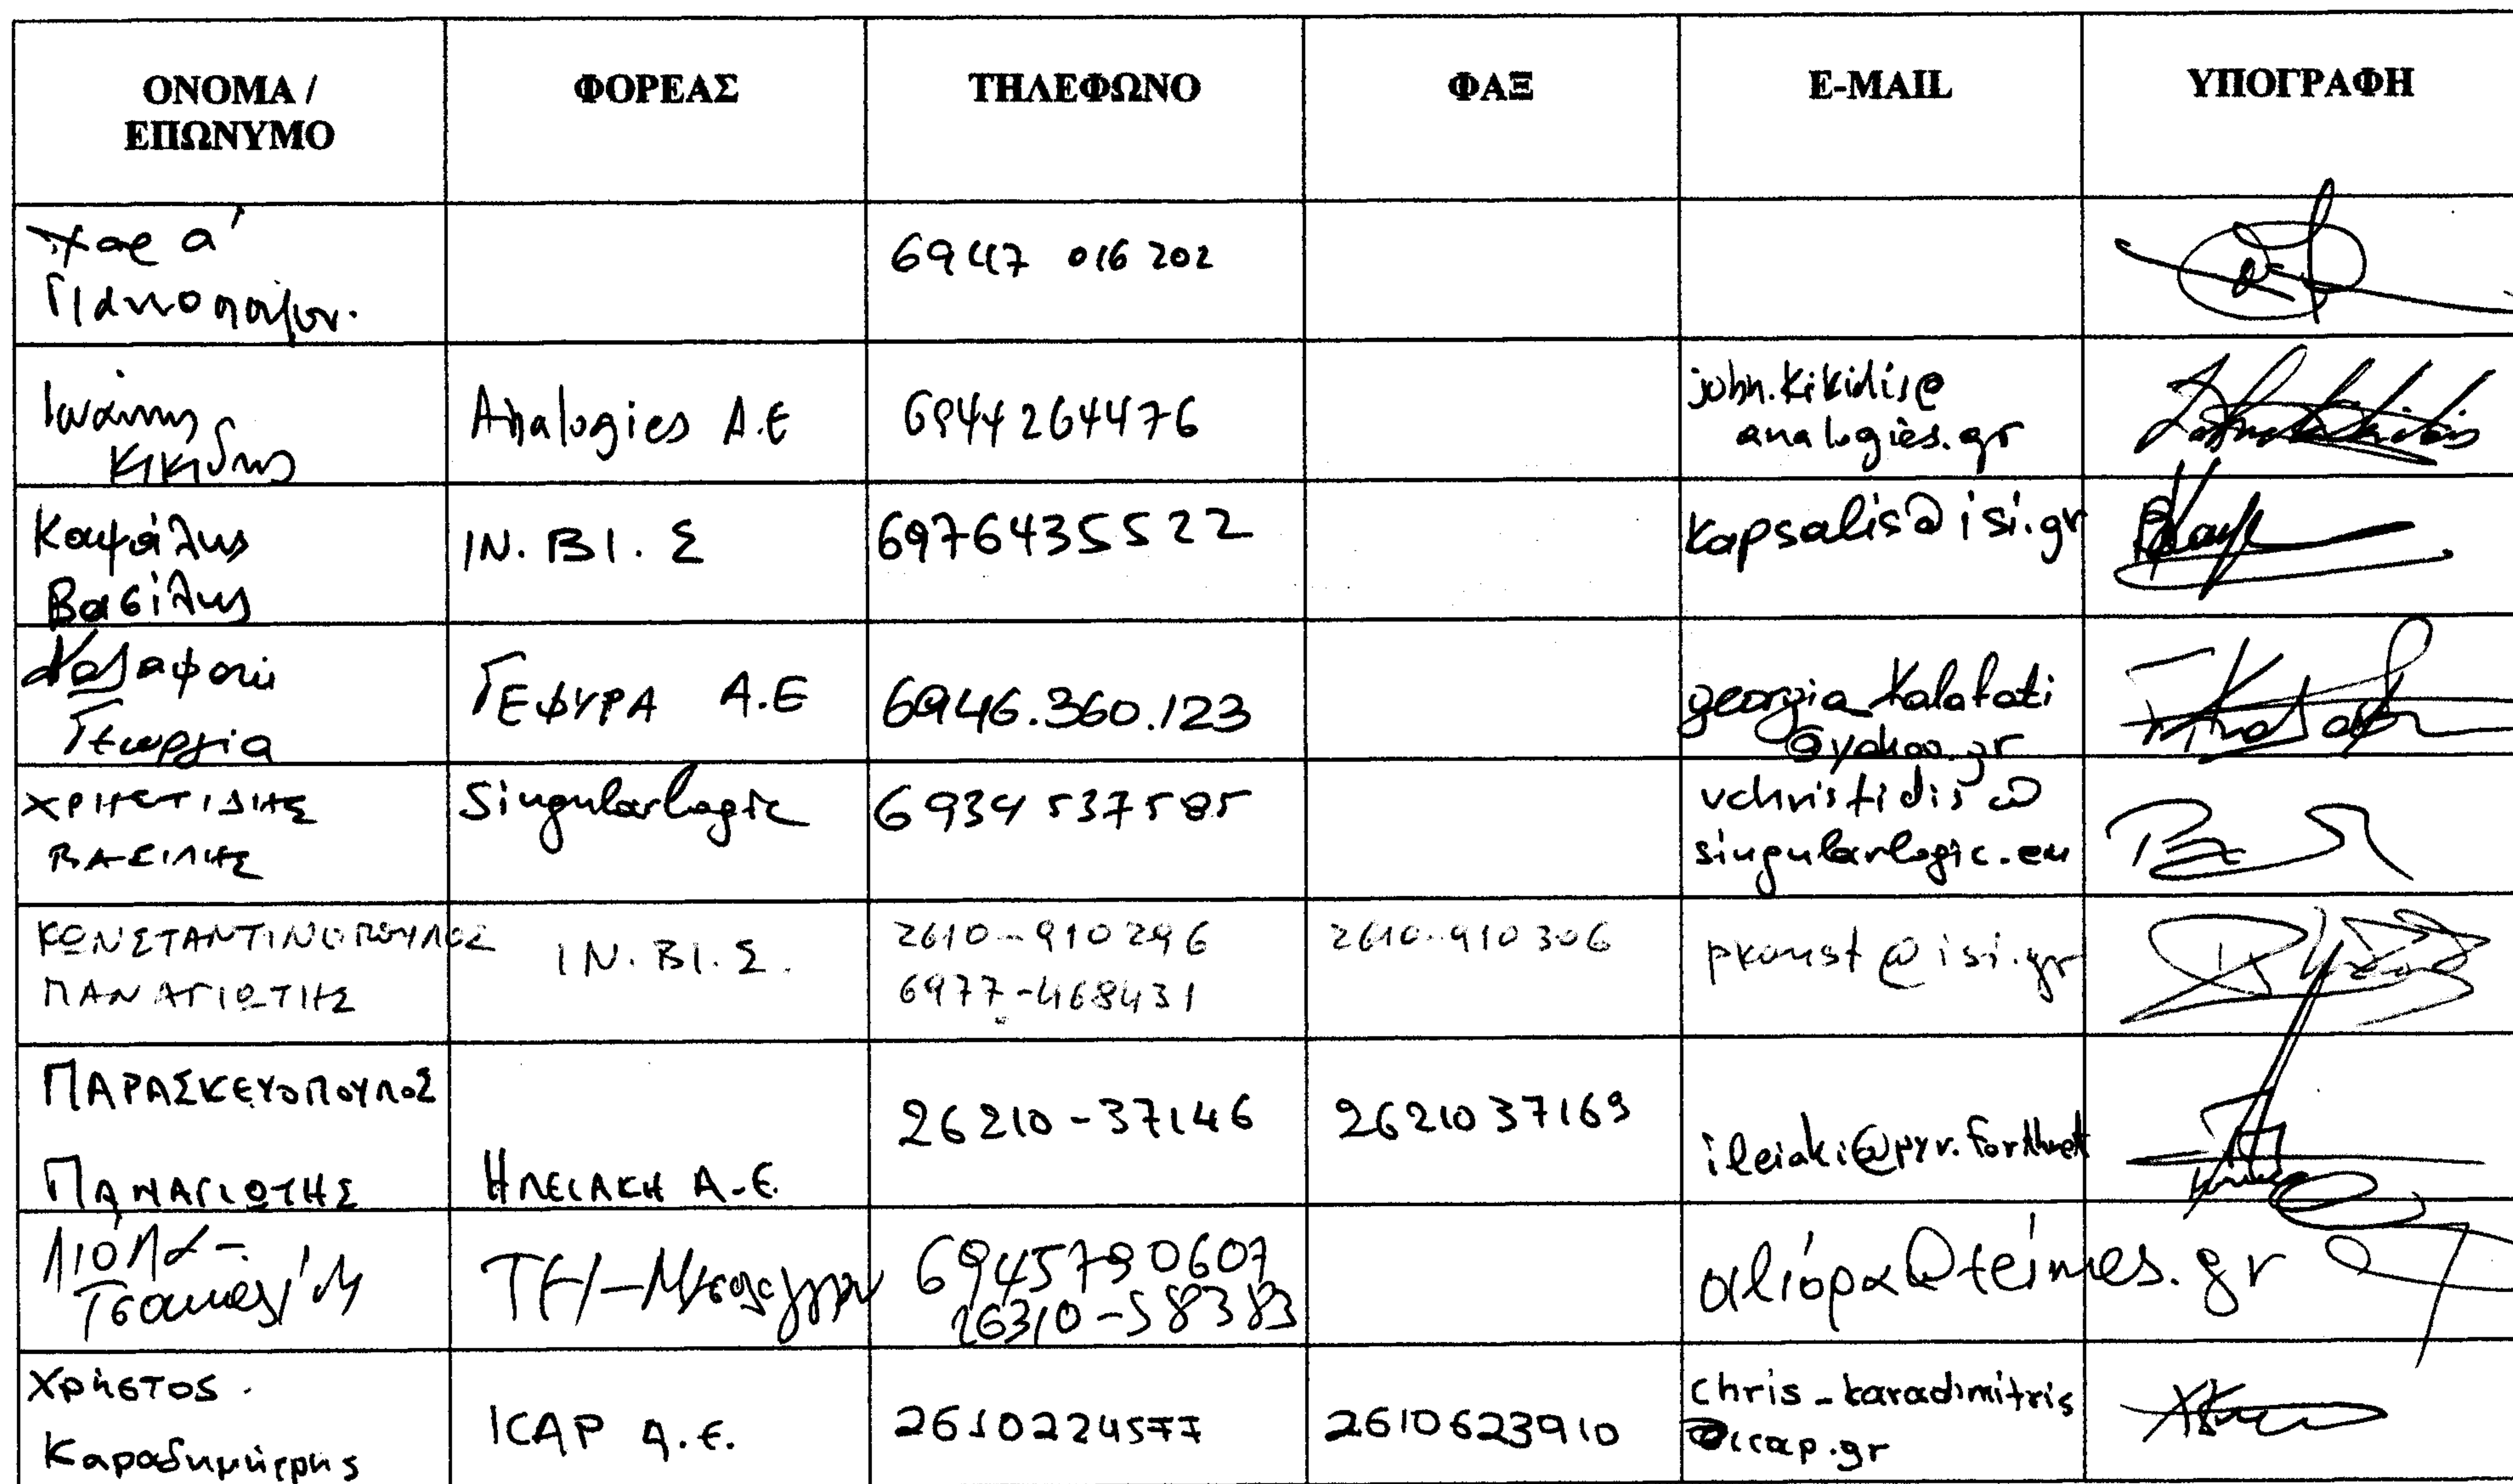 ΟΝΟΜΑ / ΕΠΩΝΥΜΟ ΦΟΡΕΑΣ ΤΗΛΕΦΩΝΟ ΦΑΞ E-MAIL ΥΠΟΓΡΑΦΗ
69447 016 202
Ιωάννης Κικιδης Analogies A.E 6944264476 john.kikidis@ analogies.gr
Καψάλης Βασίλης ΙΝ. ΒΙ. Σ 6976435522 kapsalis@isi.gr
Καλαφατη Γεωργία ΓΕΦΥΡΑ Α.Ε 6946.360.123 georgia_kalafati @yahoo.gr
ΧΡΗΣΤΙΔΗΣ ΒΑΣΙΛΗΣ Singularlogic 6934 537585 vchristidis@ singularlogic.eu
ΚΩΝΣΤΑΝΤΙΝΟΠΟΥΛΟΣ ΠΑΝΑΓΙΩΤΗΣ ΙΝ. ΒΙ. Σ. 2610-910296 6977-468431 2610-910306 pkonst@isi.gr
ΠΑΡΑΣΚΕΥΟΠΟΥΛΟΣ ΠΑΝΑΓΙΩΤΗΣ ΗΛΕΙΑΚΗ Α.Ε. 26210-37146 2621037169 ileiaki@pyr.forthnet
6945790607 26310-58383
Χρήστος Καραδημήτρης ICAP Α.Ε. 2610224577 2610623910 chris_karadimitris @icap.gr